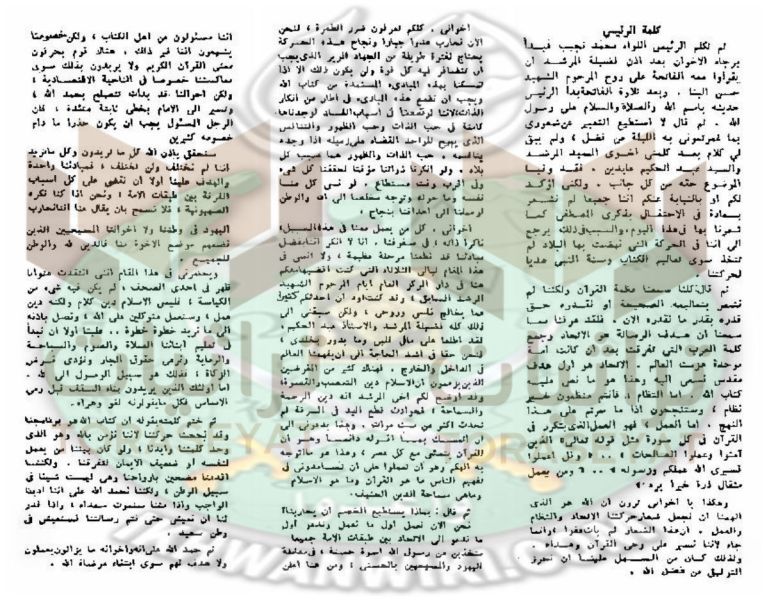 كلمة الرئيسي
ثم تكلم الرئيس اللواء محمد نجيب فبدأ
برجاء الاخوان بعد اذن فضيلة المرشد ان
يقرأوا معه الفاتحة على روح المرحوم الشهيد
حسن البنا . وبعد تلاوة الفاتحة بدأ الرئيس
حديثه باسم الله والصلاة والسلام على رسول
الله . ثم قال لا استطيع التعبير عن شعورى
بما غمرتمونى به الليلة من فضل ، ولم يبق
لي كلام بعد كلمتى أخوى السيد المرشد
والسيد عبد الحكيم عابدين . فقد وفيا
الموضوع حقه من كل جانب . ولكنى أؤكد
لكم أو بالنيابة عنكم أننا جميعا لم نشعر
بسعادة في الاحتفال بذكرى المصطفى كما
شعرنا بها في هذا اليوم، والسبب في ذلك يرجع
الى اننا في الحركة التي نهضت بها البلاد لم
نتخذ سوى تعاليم الكتاب وسنة النبى هديا
لحركتنا
قال: كلنا سمعنا عظمة القرآن ولكننا لم
نشعر بتعاليمه الصحيحة أو نقدره حق
قدره بقدر ما نقدره الآن . فلقد عرفنا مما
سمعنا ان هدف الرسالة هو الاتحاد وجمع
كلمة العرب التي تفرقت بعد ان كانت أمة
موحدة هزت العالم . الاتحاد هو أول هدف
مقدس نسعى اليه وهذا هو ما نص عليه
كتاب الله . أما النظام ، فأنتم منظمون خير
نظام ، وستنجحون اذا ما سرتم على هذا
النهج . أما العمل ، فهو العمل الذى يتكرر في
القرآن في كل سورة مثل قوله تعالى « الذين
آمنوا وعملوا الصالحات .. » « وقل اعملوا
فسيرى الله عملكم ورسوله .. » « ومن يعمل
مثقال ذرة خيرا يره »
وهكذا يا اخوانى ترون أن الله هو الذى
الهمنا ان نجعل شعار حركتنا الاتحاد والنظام
والعمل .
جاء لاننا نسير على وحى القرآن وهداه .
ولذلك كان من السهل علينا أن نحرق
التوفيق من فضل الله .
أخوانى . كلكم تعرفون ضرر الطفرة ، فنحن
الآن نحارب عدوا جبارا ونجاح هذه الحركة
يحتاج لفترة طويلة من الجهاد المرير الذى يجب
أن تتضافر فيه كل قوة ولن يكون ذلك الا اذا
تمسكنا بهذه المبادىء المستمدة من كتاب الله
ويجب ان نضع هذه المبادىء في اطار من انكار
الذات، اننا لو تمعنا في أسباب الفساد لوجدناها
كامنة في حب الذات وحب الظهور والتنافس
الذى يبيح للواحد القضاء على زميله اذا وجده
ينافسه . حب الذات والظهور هما سبب كل
بلاء . ولو أنكرنا ذواتنا مؤقتا لحققنا كل شىء
في أقرب وقت مستطاع . لو نسى كل منا
نفسه وغروره وتوجه مخلصا الى الله والوطن
لوصلنا الى أهدافنا بنجاح .
أخوانى . كل من يعمل معنا في هذا السبيل،
ناكرا ذاته ، في صفوفنا . أنا لا أنكر أننا بفضل
مبادئنا قد قطعنا مرحلة عظيمة ، ولا أنسى في
هذا المقام ليالى الثلاثاء التى كنت أقضيها معكم
هنا في دار المركز العام أيام المرحوم الشهيد
المرشد السابق
مما يخالج نفسى وروحى ، ولكن سبقنى الى
ذلك كله فضيلة المرشد والاستاذ عبد الحكيم ،
فقد أطلعا على ما في نفسى وما يدور بخلدى .
ونحن هنا في أشد الحاجة الى أن يفهمنا العالم
في الداخل والخارج ، فهناك كثير من المغرضين
الذين يزعمون أن الاسلام دين التعصب والقسوة،
وقد أوضح لكم أخى المرشد أنه دين الرحمة
والسماحة ، فحوادث قطع اليد في السرقة لم
تحدث أكثر من ست مرات .
للقرآن يتمشى مع كل عصر ، وهذا هو ما أتوجه
به اليكم وهو أن تعملوا على أن تساعدونى في
تفهيم الناس ما هو القرآن وما هو الاسلام
وما هى سماحة الدين الحنيف .
ثم قال : بماذا يستطيع الخصم أن يحاربنا؟
نحن الآن نعمل أول ما نعمل وندعو أول
ما ندعو الى الاتحاد بين طبقات الامة جميعا
متخذين من رسول الله أسوة حسنة ، في معاملة
اليهود والمسيحيين بالحسنى . ومن هنا أعلن
اننا مسئولون من أهل الكتاب ، ولكن خصومنا
يتهموننا أننا غير ذلك . هناك قوم يحرفون
معنى القرآن الكريم ولا يريدون بذلك سوى
معاكستنا خصوصا في الناحية الاقتصادية ،
ولكن أحوالنا قد بدأت تتصلح بحمد الله ،
وتسير الى الامام بخطى ثابتة متئدة ، فان
الرجل المسئول يجب أن يكون حذرا ما دام
خصومه كثيرين
سنحقق باذن الله كل ما تريدون وكل ما نريد
أننا لم نختلف ولن نختلف ، فمبادئنا واحدة
والهدف علينا أولا أن نقضى على كل أسباب
الفرقة بين طبقات الامة ، ونحن اذا كنا نكره
الصهيونية ، فلا نسمح بأن يقال هنا أننا نحارب
اليهود في وطننا ولا اخواننا المسيحيين الذين
نضعهم موضع الاخوة منا فالدين لله والوطن
للجميع
ويحضرنى في هذا المقام أننى انتقدت عنوانا
ظهر في احدى الصحف ، لم يكن فيه شىء من
الكياسة ، فليس الاسلام دين كلام ولكنه دين
عمل ، وسنعمل متوكلين على الله ، ونصل باذنه
الى ما نريد خطوة خطوة .. علينا أولا أن نبدأ
في تعليم أبنائنا الصلاة والصوم والسماحة
والرعاية ونرعى حقوق الجار ونؤدى فرض
الزكاة ، فذلك هو سبيل الوصول الى الله .
أما أولئك الذين يريدون بناء السقف قبل رمى
الاساس فكل ما يقولونه لغو وهراء .
ثم ختم كلمته بقوله ان كتاب الله هو برنامجنا
وقد نجحت حركتنا لاننا نؤمن بالله وهو الذى
وحد كلمتنا وأيدنا ، ولو كان بيننا من يعمل
لنفسه أو ضعيف الايمان لتفرقنا . ولكننا
أقدمنا مضحين بأرواحنا وهى ليست شيئا في
سبيل الوطن ، ولكننا نحمد الله على أننا أدينا
الواجب واذا متنا سنموت سعداء ، واذا قدر
لنا أن نعيش حتى نتم رسالتنا فسنعيش في
وطن سعيد .
ثم حمد الله على أنه وأخوانه ما يزالون يعملون
ولا هدف لهم سوى ابتغاء مرضاة الله .
IKHWANWIKI.COM